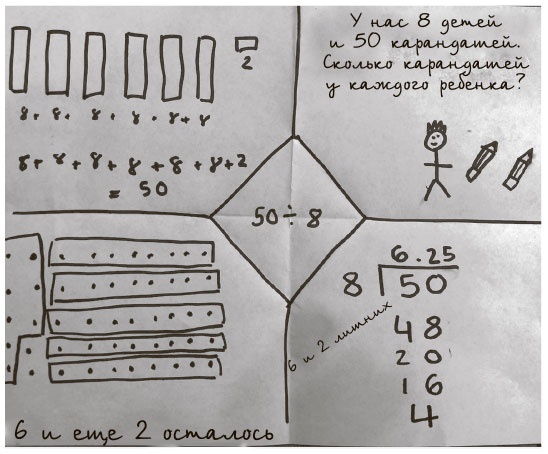 2
8+ 8+ 8+ 8+ 8+ 8
8+ 8+ 8+ 8+ 8+ 8+2
= 50
У нас 8 детей
и 50 карандатей.
Сколько карандатей
у каждого ребенка?
50 ÷ 8
6 и еще 2 осталось
6.25
8 50
48
20
16
4
6 и 2 лишних